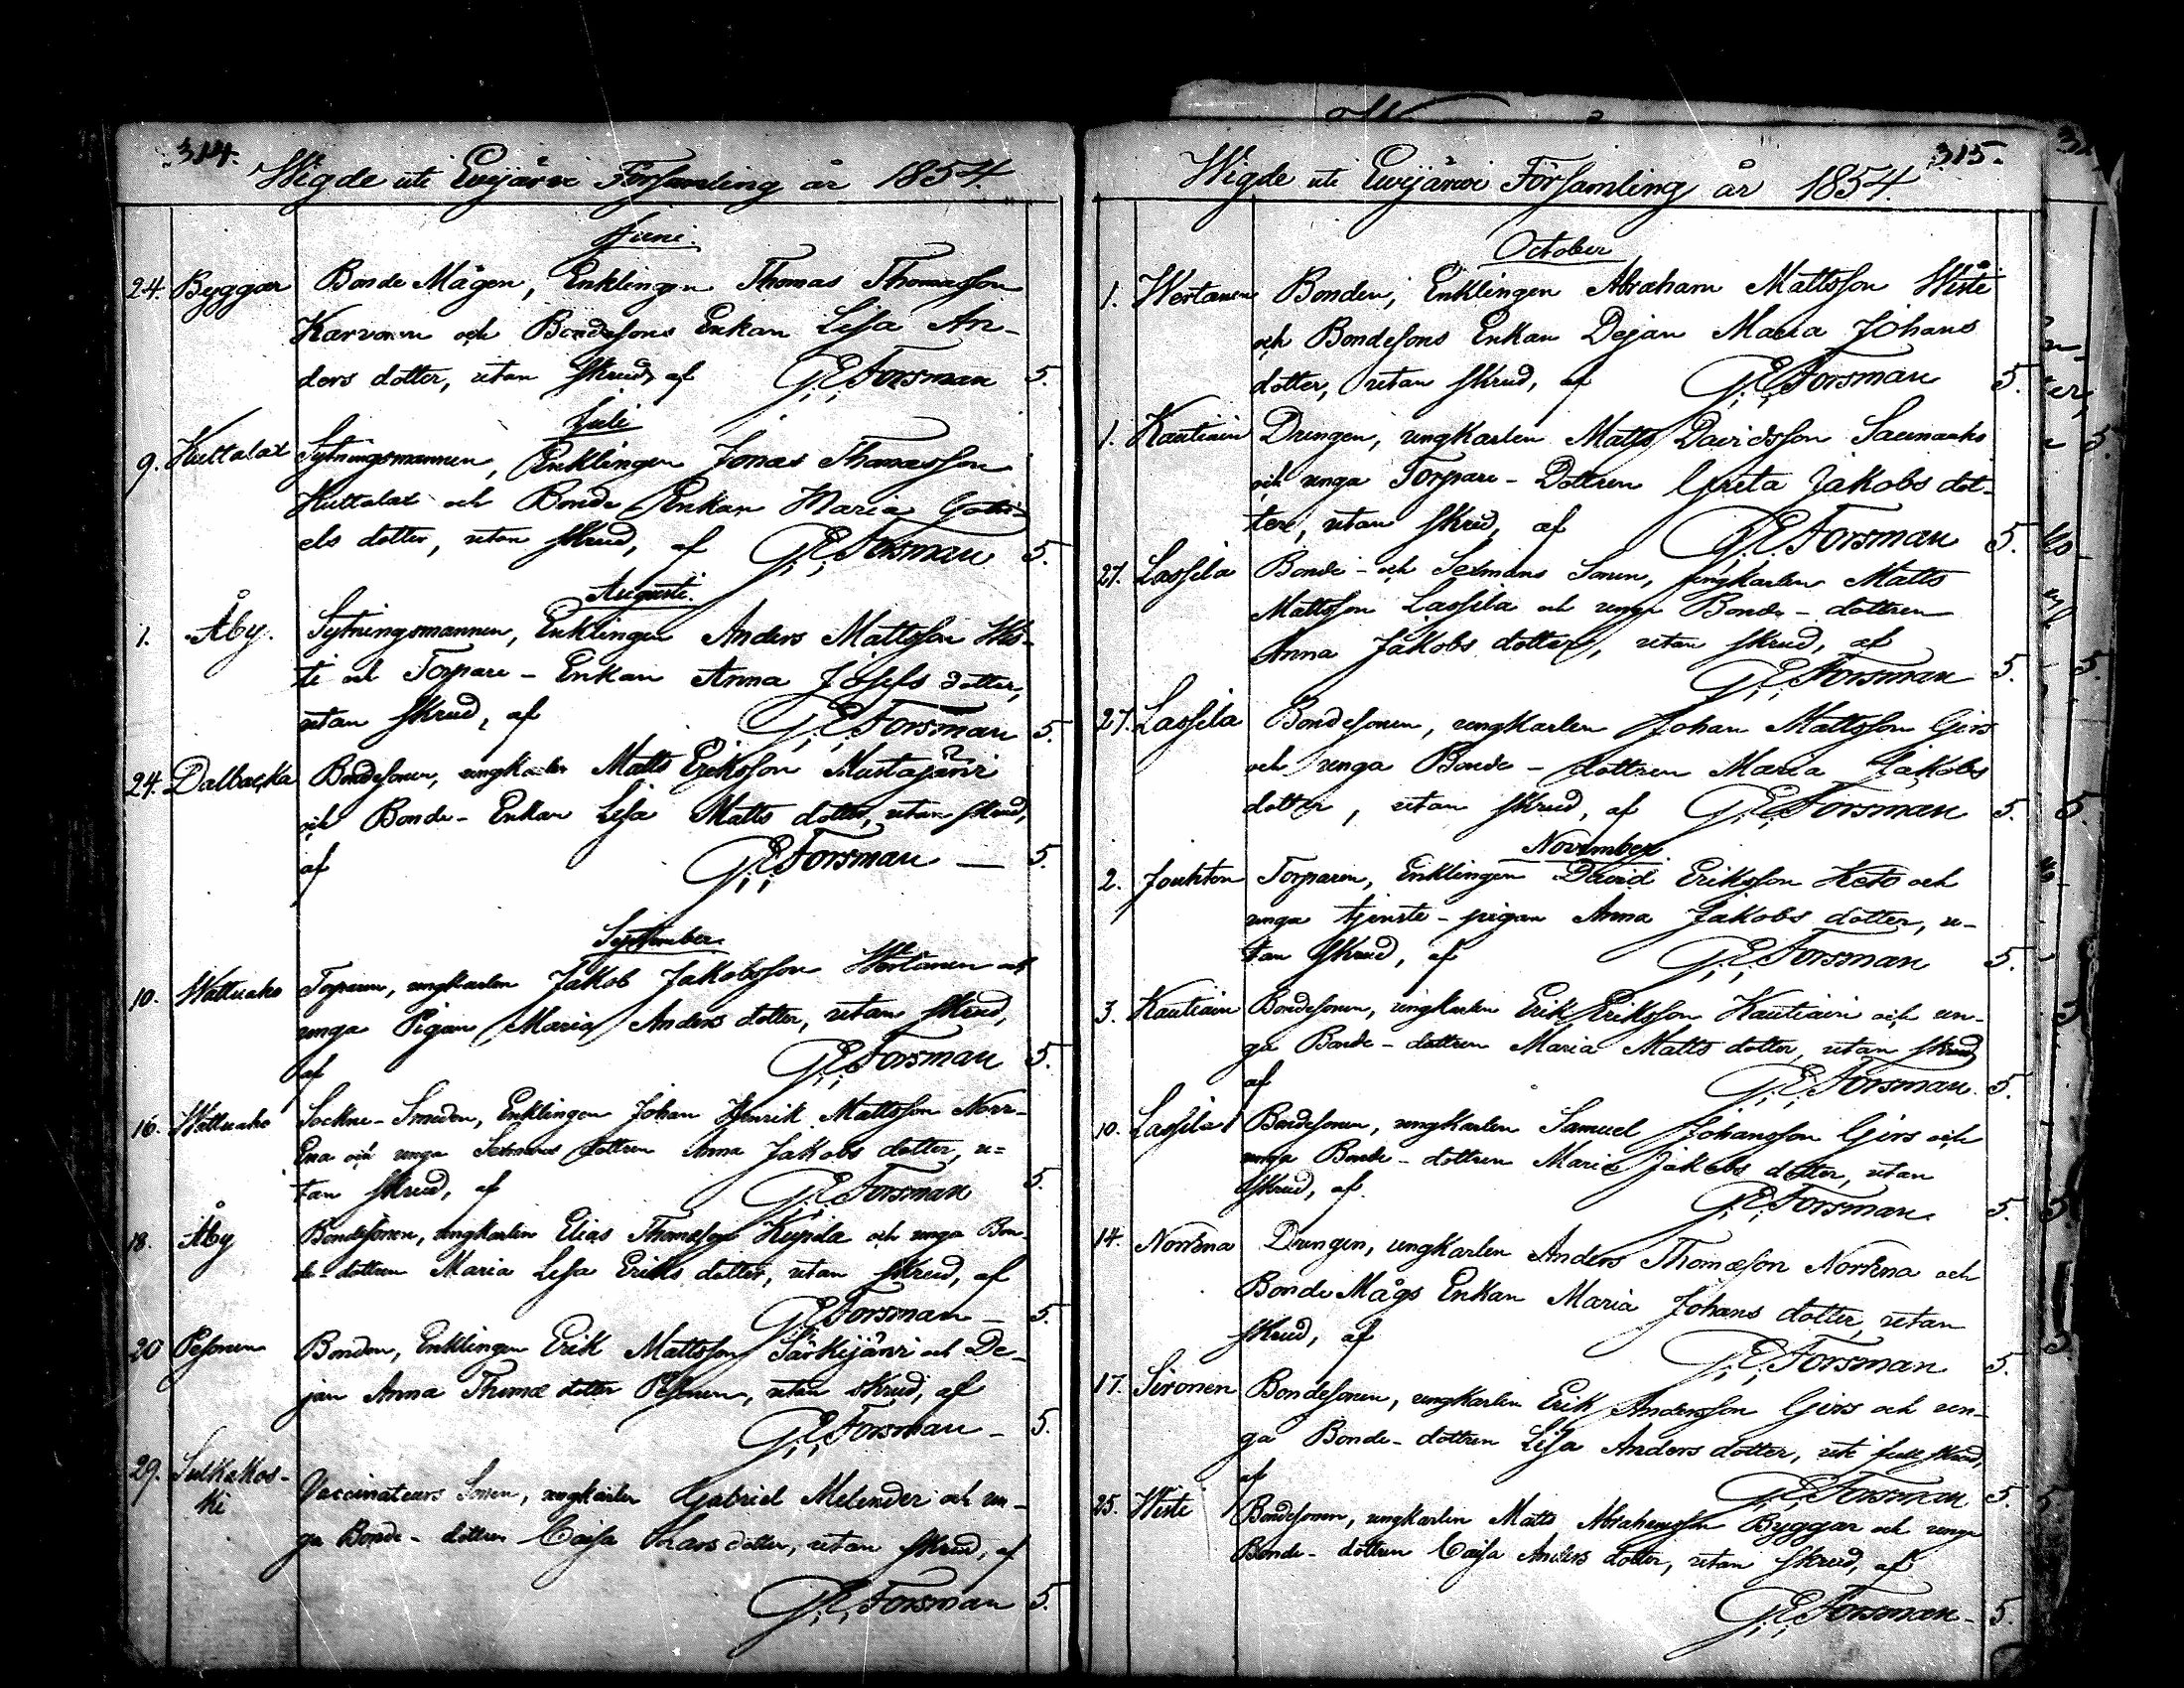 314.
Wigde uti Ewijärwi Församling år 1854.
Juni.
24. Byggar Bonde Mågen, Enklingen Thomas Thomasson
Karvonen och Bondesons Enkan Lisa An-
ders dotter, utan skrud, af G. E. Forsman 5.
Juli
9. Huttalat Sytningsmannen, Enklingen Jonas Thomasson
Huttalat och Bonde Enkan Maria
els dotter, utan skrud, af G. E. Forsman 5.
Augusti.
1. Åby. Sytningsmannen, Enklingen Anders Mattsson Wis-
ti och Torpare-Enkan Anna Josefs dotter,
utan skrud, af G. E. Forsman 5.
24. Dalbacka Bondesonen, ungkarlen Matts Eriksson Mustajärvi
och Bonde-Enkan Lisa Matts dotter, utan skrud,
af G. E. Forsman — 5.
September.
10. Wattuaho Torparen, ungkarlen Jakob Jakobsson Wertanen och
unga Pigan Maria Anders dotter, utan skrud,
af G. E. Forsman 5.
16. Wattuaho Sockne-Smeden, Enklingen Johan Henrik Mattsson Norr-
ena och unga Sexmans dottren Anna Jakobs dotter, u=
tan skrud, af G. E. Forsman 5.
18. Åby Bondesonen, ungkarlen Elias Thomasson Kupila och unga Bon-
de-dottren Maria Lisa Eriks dotter, utan skrud, af
G. E. Forsman — 5.
20 Pesonen Bonden, Enklingen Erik Mattsson Särkijärvi och De-
jan Anna Thomæ dotter Pesonen, utan skrud, af
G. E. Forsman — 5.
29. Sulkakos-
ki
Vaccinateurs Sonen, ungkarlen Gabriel Melender och un-
ga Bonde-dottren Caisa Lars dotter, utan skrud, af
G. E. Forsman 5.
315.
Wigde uti Ewijärwi Församling år 1854.
October
1. Wertanen Bonden, Enklingen Abraham Mattsson Wisti
och Bondesons Enkan Dejan Maria Johans
dotter, utan skrud, af G. E. Forsman 5.
1. Kautiain Drengen, ungkarlen Matts Davidsson Saunaaho
och unga Torpare-Dottren Greta Jakobs dot-
ter, utan skrud, af G. E. Forsman 5.
27. Lassila Bonde- och Sexmans Sonen, ungkarlen Matts
Mattsson Lassila och unga Bonde-dottren
Anna Jakobs dotter, utan skrud, af
G. E. Forsman 5.
27. Lassila Bondesonen, ungkarlen Johan Mattsson Girs
och unga Bonde-dottren Maria Jakobs
dotter, utan skrud, af G. E. Forsman 5.
November
2. Joukton Torparen, Enklingen David Eriksson Keto och
unga tjenste-pigan Anna Jakobs dotter, u-
tan skrud, af G. E. Forsman 5.
3. Kautiain Bondesonen, ungkarlen Erik Eriksson Kautiain och un-
ga Bonde-dottren Maria Matts dotter, utan skrud
af G. E. Forsman. 5.
10. Lassila Bondesonen, ungkarlen Samuel Johansson Girs och
unga Bonde-dottren Maria Jakobs dotter, utan
skrud, af. G. E. Forsman. 5.
14. Norrena Drengen, ungkarlen Anders Thomæson Norrena och
Bonde Mågs Enkan Maria Johans dotter, utan
skrud, af G. E. Forsman 5.
17. Sironen Bondesonen, ungkarlen Erik Andersson Girs och un-
ga Bonde-dottren Lisa Anders dotter, uti full skrud,
af G. E. Forsman 5.
25. Wisti Bondesonen, ungkarlen Matts Abrahamsson Byggar och unga
Bonde-dottren Caisa Anders dotter, utan skrud, af
G. E. Forsman — 5.